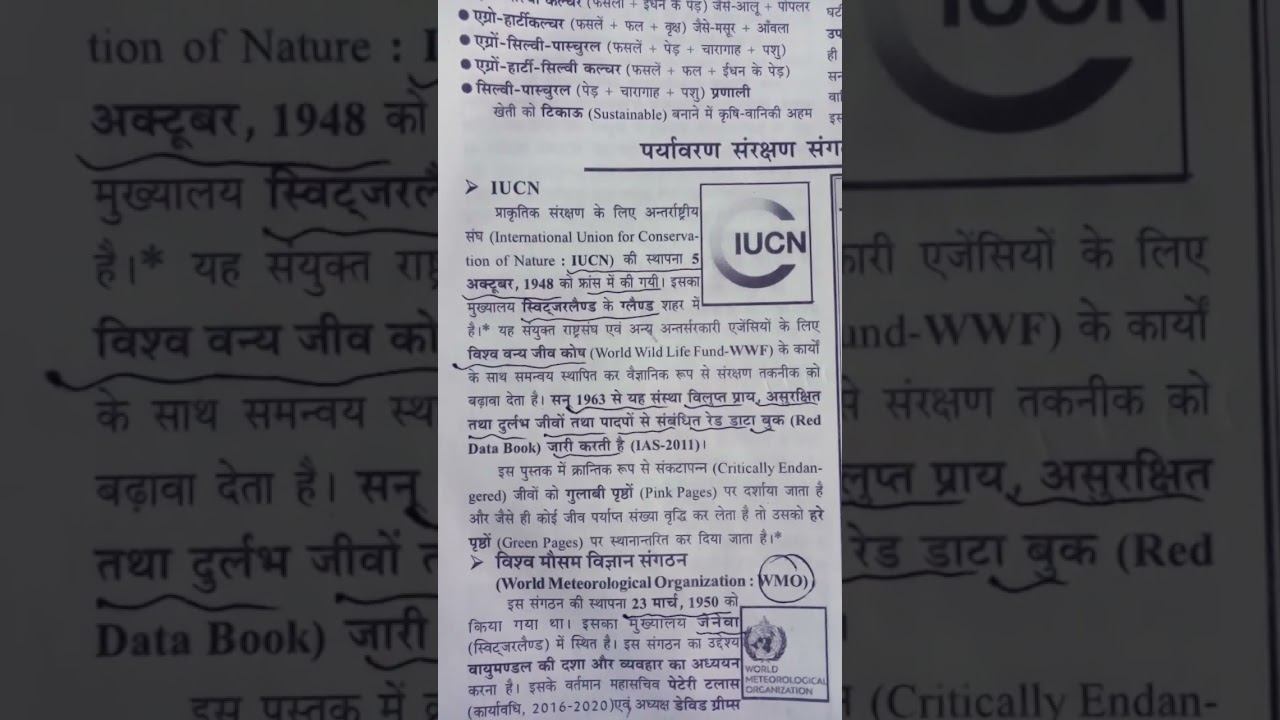 कल्चर (फसलें + ईंधन के पेड़) जैसे-आलू + पोपलर
• एग्रो-हार्टीकल्चर (फसलें + फल + वृक्ष) जैसे-मसूर + आँवला
• एग्रों-सिल्वी-पास्चुरल (फसलें + पेड़ + चारागाह + पशु)
• एग्रों-हार्टी-सिल्वी कल्चर (फसलें + फल + ईंधन के पेड़)
• सिल्वी-पास्चुरल (पेड़ + चारागाह + पशु) प्रणाली
खेती को टिकाऊ (Sustainable) बनाने में कृषि-वानिकी अहम
पर्यावरण संरक्षण संग
➤ IUCN
प्राकृतिक संरक्षण के लिए अन्तर्राष्ट्रीय
संघ (International Union for Conserva-
tion of Nature : IUCN) की स्थापना 5
अक्टूबर, 1948 को फ्रांस में की गयी। इसका
मुख्यालय स्विट्जरलैण्ड के ग्लैण्ड शहर में
है।* यह संयुक्त राष्ट्रसंघ एवं अन्य अन्तर्सरकारी एजेंसियों के लिए
विश्व वन्य जीव कोष (World Wild Life Fund-WWF) के कार्यों
के साथ समन्वय स्थापित कर वैज्ञानिक रूप से संरक्षण तकनीक को
बढ़ावा देता है। सन् 1963 से यह संस्था विलुप्त प्राय, असुरक्षित
तथा दुर्लभ जीवों तथा पादपों से संबंधित रेड डाटा बुक (Red
Data Book) जारी करती है (IAS-2011)।
इस पुस्तक में क्रान्तिक रूप से संकटापन्न (Critically Endan-
gered) जीवों को गुलाबी पृष्ठों (Pink Pages) पर दर्शाया जाता है
और जैसे ही कोई जीव पर्याप्त संख्या वृद्धि कर लेता है तो उसको हरे
पृष्ठों (Green Pages) पर स्थानान्तरित कर दिया जाता है।*
➤ विश्व मौसम विज्ञान संगठन
(World Meteorological Organization : WMO)
इस संगठन की स्थापना 23 मार्च, 1950 को
किया गया था। इसका मुख्यालय जेनेवा
(स्विट्जरलैण्ड) में स्थित है। इस संगठन का उद्देश्य
वायुमण्डल की दशा और व्यवहार का अध्ययन
करना है। इसके वर्तमान महासचिव पेटेरी टलास
(कार्यावधि, 2016-2020)एवं अध्यक्ष डेविड ग्रीम्स
IUCN
WORLD
METEOROLOGICAL
ORGANIZATION